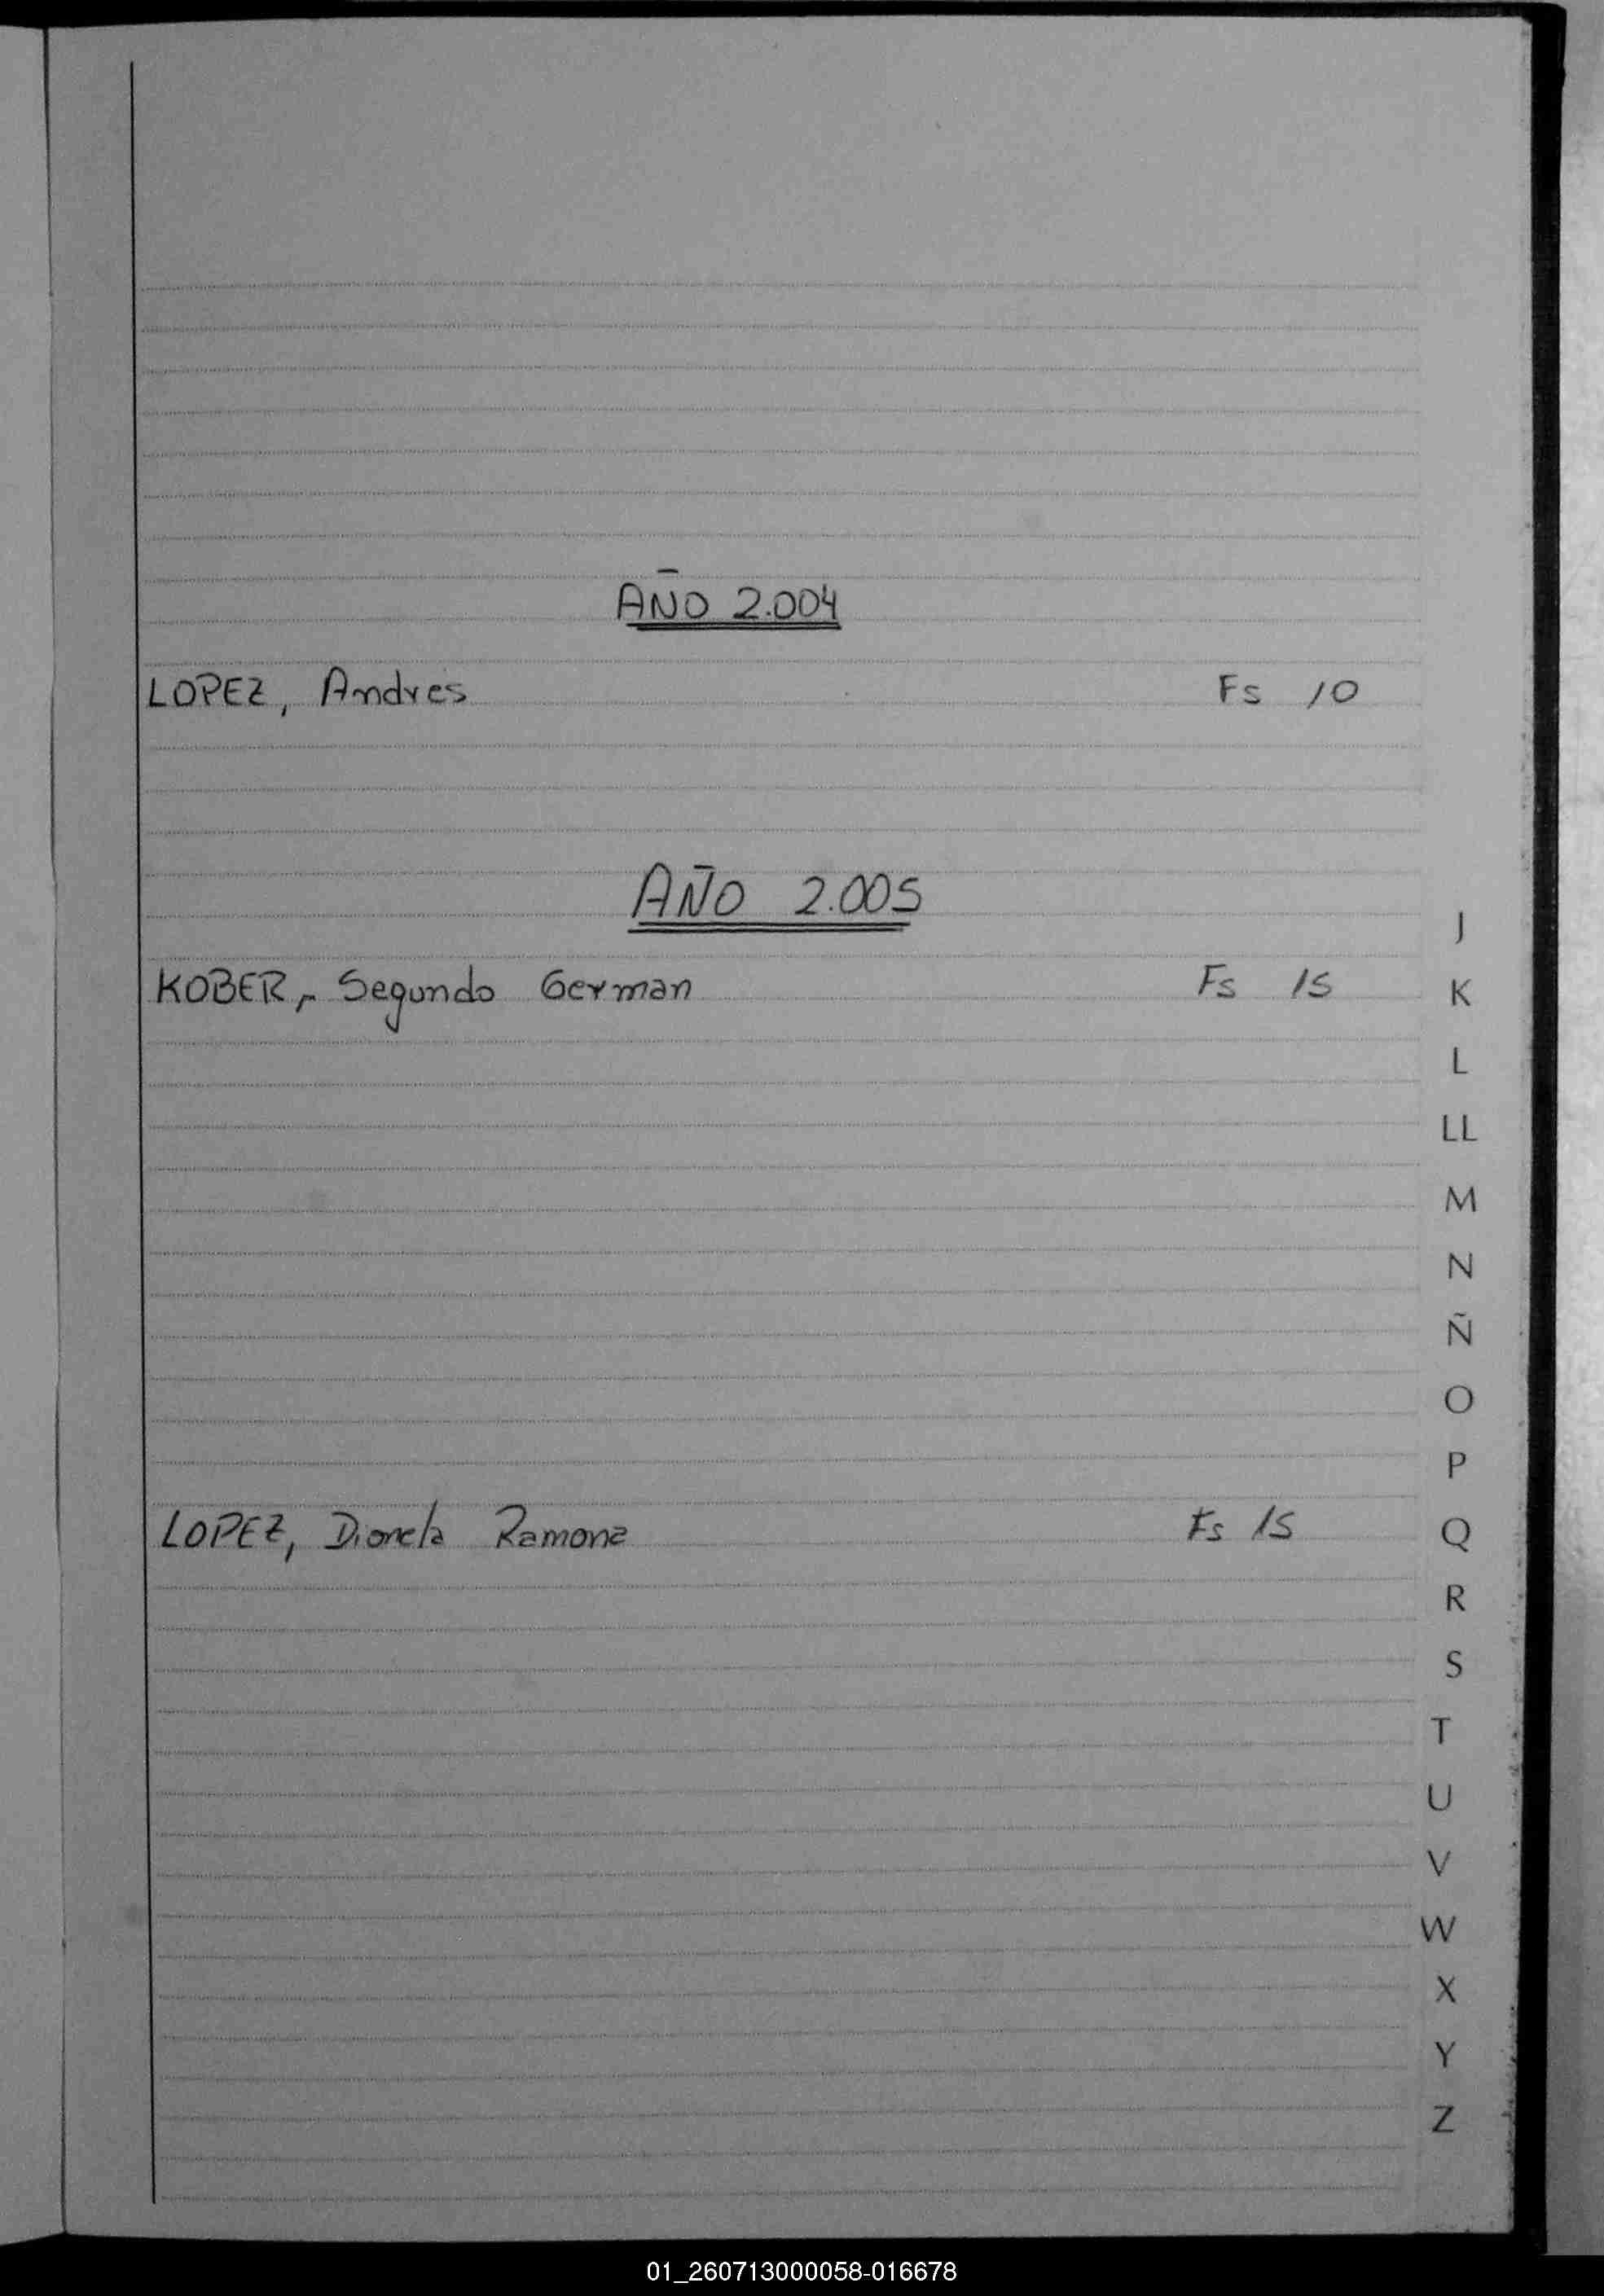 AÑO 2.004
LOPEZ, Andrés Fs 10
AÑO 2.005
KOBER, Segundo German Fs 15
LOPEZ, Dionela Ramona Fs 15
J
K
L
LL
M
N
Ñ
O
P
Q
R
S
T
U
V
W
X
Y
Z
01_260713000058-016678